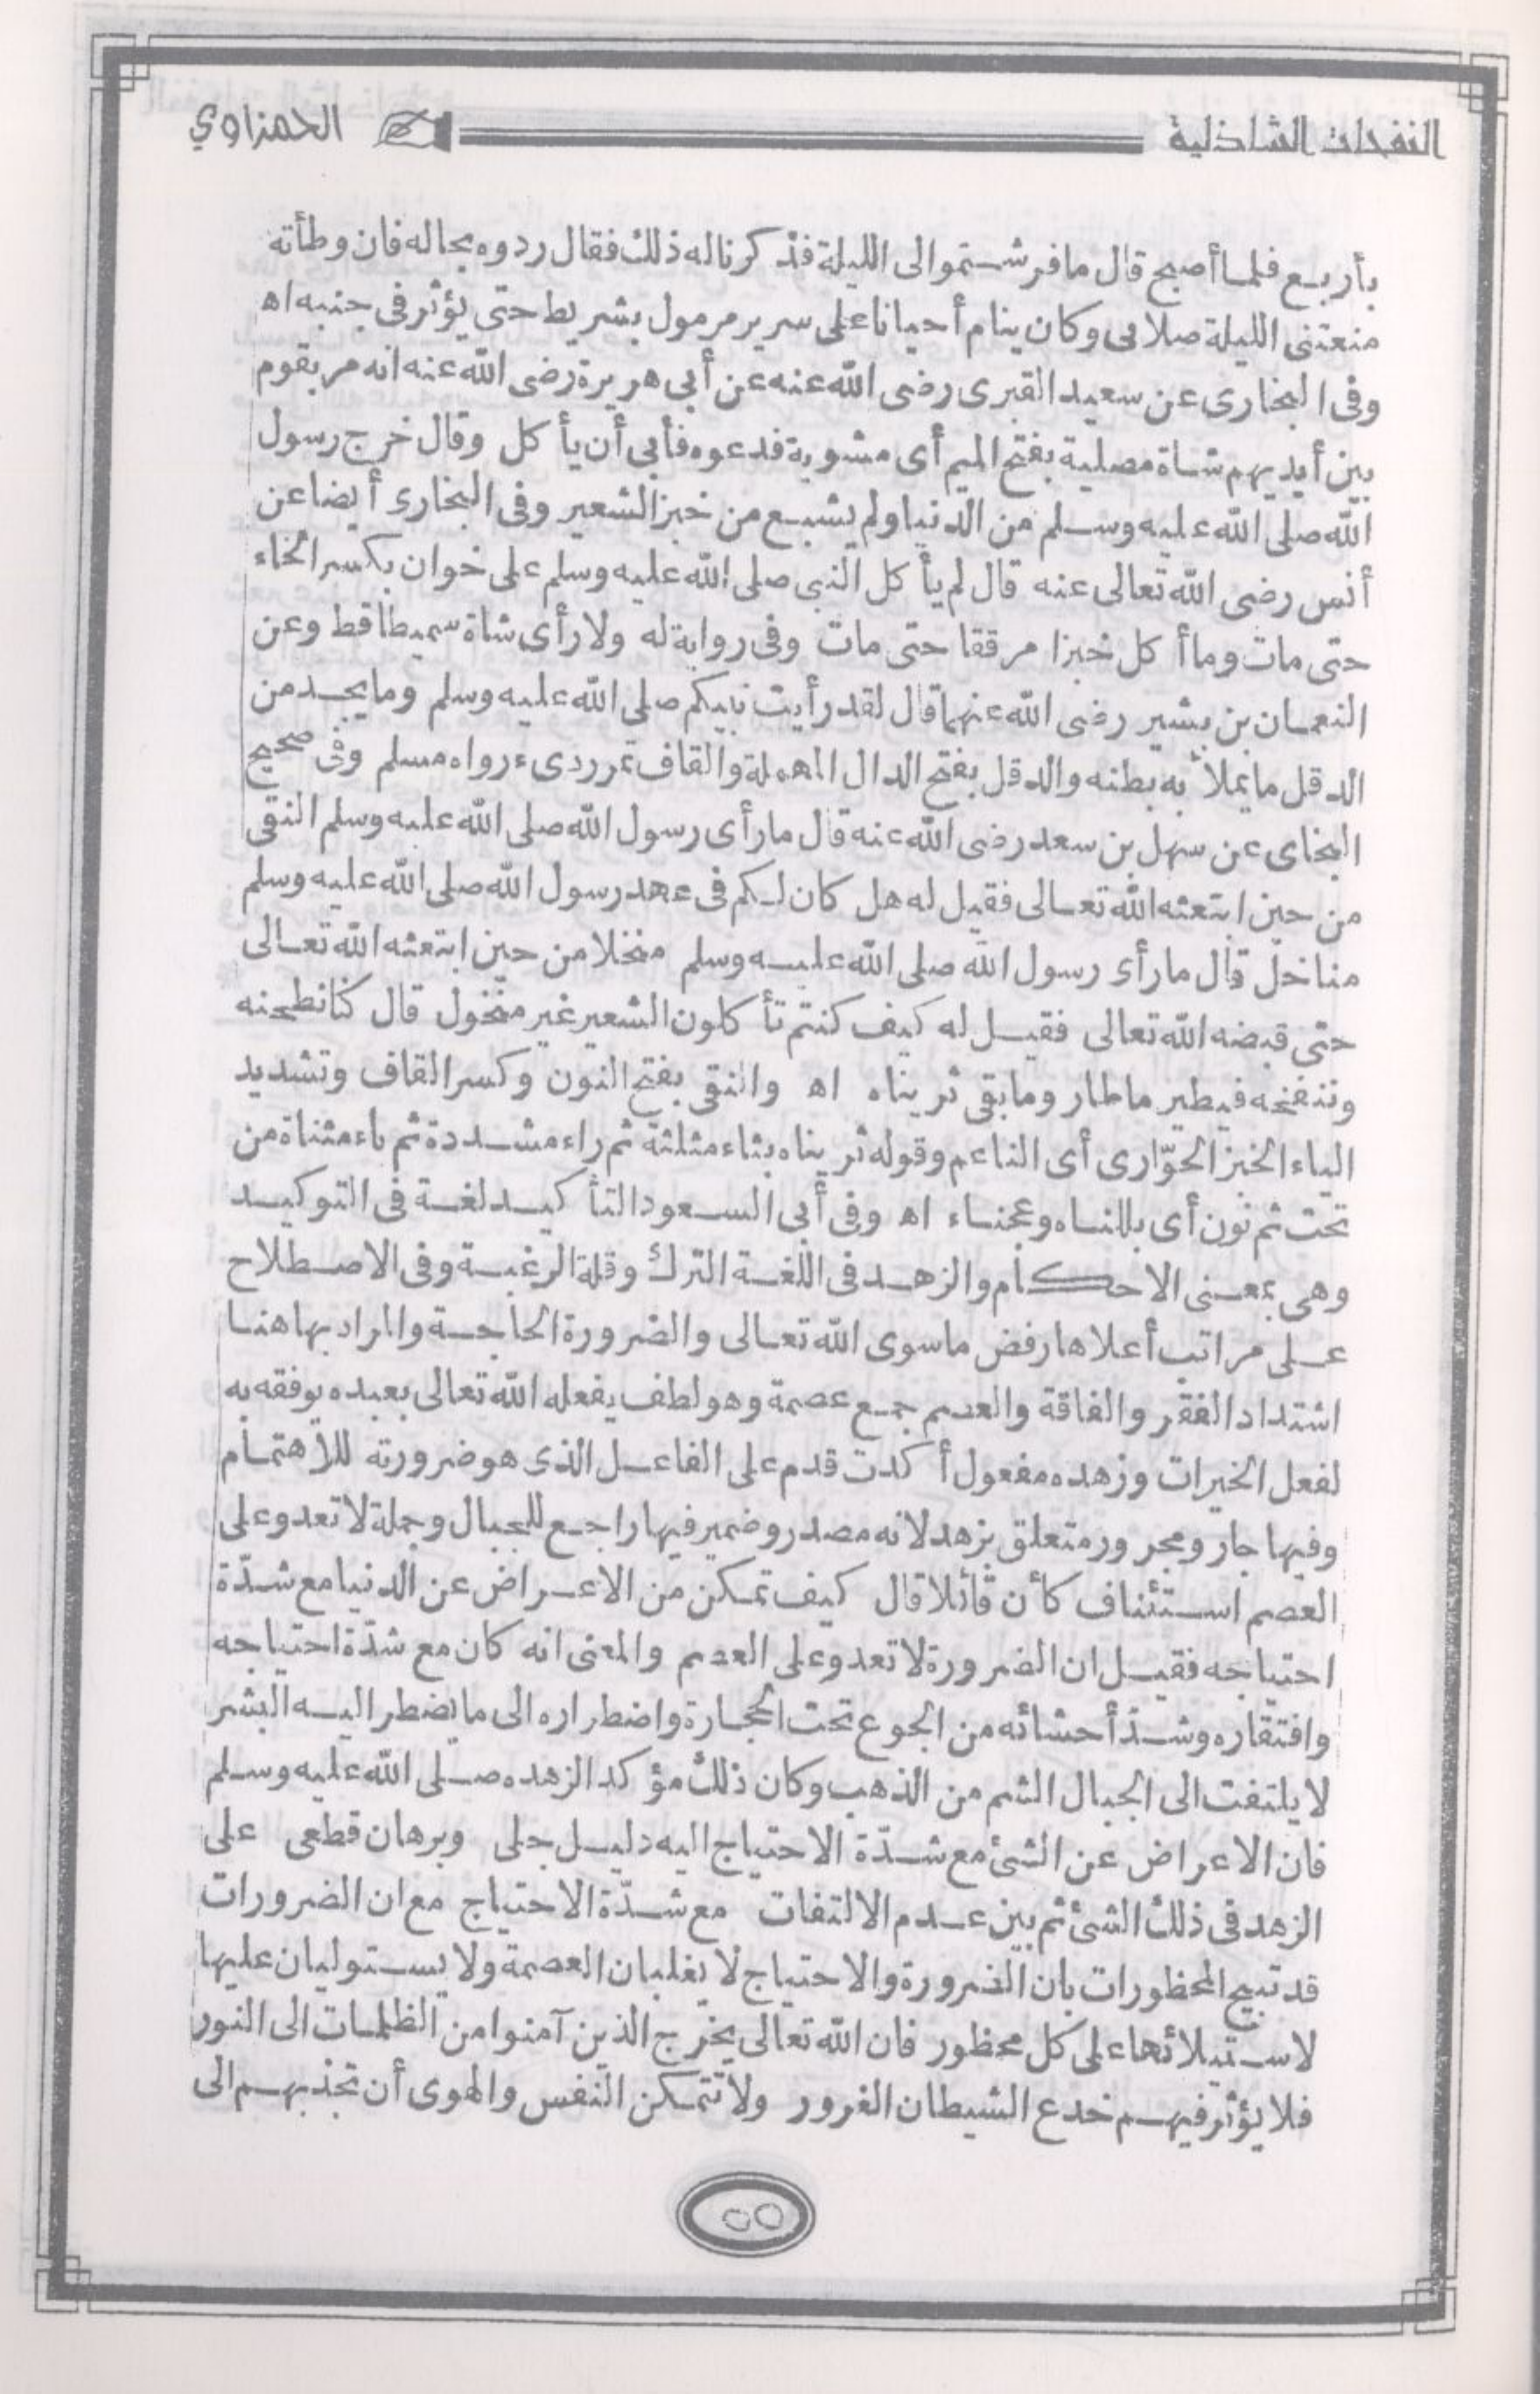 النفحات الشاذلية الحمزاوي
بأربع فلما أصبح قال ما فرشتموا لى الليلة فذكرنا له ذلك فقال ردوه بحاله فان وطأته
منعتنى الليلة صلاتى وكان ينام أحيانا على سرير مرمول بشريط حتى يؤثر فى جنبه اه
وفى البخارى عن سعيد القبرى رضى الله عنه عن أبى هريرة رضى الله عنه انه مر بقوم
بين أيديهم شاة مصلية بفتح الميم أى مشوية فدعوه فأبى أن يأكل وقال خرج رسول
الله صلى الله عليه وسلم من الدنيا ولم يشبع من خبز الشعير وفى البخارى أيضا عن
أنس رضى الله تعالى عنه قال لم يأكل النبى صلى الله عليه وسلم على خوان بكسر الخاء
حتى مات وما أكل خبزا مرققا حتى مات وفى رواية له ولا رأى شاة سميطا قط وعن
النعمان بن بشير رضى الله عنهما قال لقد رأيت نبيكم صلى الله عليه وسلم وما يجد من
الدقل ما يملأ به بطنه والدقل بفتح الدال المهملة والقاف تمر ردىء رواه مسلم وفى صحيح
البخاى عن سهل بن سعد رضى الله عنه قال ما رأى رسول الله صلى الله عليه وسلم النقى
من حين ابتعثه الله تعالى فقيل له هل كان لكم فى عهد رسول الله صلى الله عليه وسلم
مناخل قال ما رأى رسول الله صلى الله عليه وسلم منخلا من حين ابتعثه الله تعالى
حتى قبضه الله تعالى فقيل له كيف كنتم تأكلون الشعير غير منخول قال كنا نطحنه
وننفخه فيطير ما طار وما بقى ثريناه اه والنقى بفتح النون وكسر القاف وتشديد
الياء الخبز الحوّارى أى الناعم وقوله ثريناه بثاء مثلثة ثم راء مشددة ثم ياء مثناة من
تحت ثم نون أى بللناه وعجناه اه وفى أبى السعود التأكيد لغة فى التوكيد
وهى بمعنى الاحكام والزهد فى اللغة الترك وقلة الرغبة وفى الاصطلاح
على مراتب أعلاها رفض ما سوى الله تعالى والضرورة الحاجة والمراد بها هنا
اشتداد الفقر والفاقة والعصم جمع عصمة وهو لطف يفعله الله تعالى بعبده يوفقه به
لفعل الخيرات وزهده مفعول أكدت قدم على الفاعل الذى هو ضرورته للاهتمام
وفيها جار ومجرور متعلق بزهد لانه مصدر وضمير فيها راجع للجبال وجملة لا تعدو على
العصم استئناف كأن قائلا قال كيف تمكن من الاعراض عن الدنيا مع شدّة
احتياجه فقيل ان الضرورة لا تعدو على العصم والمعنى انه كان مع شدّة احتياجه
وافتقاره وشدّ أحشائه من الجوع تحت الحجارة واضطراره الى ما يضطر اليه البشر
لا يلتفت الى الجبال الشم من الذهب وكان ذلك مؤكدا لزهده صلى الله عليه وسلم
فان الاعراض عن الشئ مع شدّة الاحتياج اليه دليل جلى وبرهان قطعى على
الزهد فى ذلك الشئ ثم بين عدم الالتفات مع شدّة الاحتياج مع ان الضرورات
قد تبيح المحظورات بان الضرورة والاحتياج لا يغلبان العصمة ولا يستوليان عليها
لاستيلائها على كل محظور فان الله تعالى يخرج الذين آمنوا من الظلمات الى النور
فلا يؤثر فيهم خدع الشيطان الغرور ولا تتمكن النفس والهوى أن تجذبهم الى
٥٥